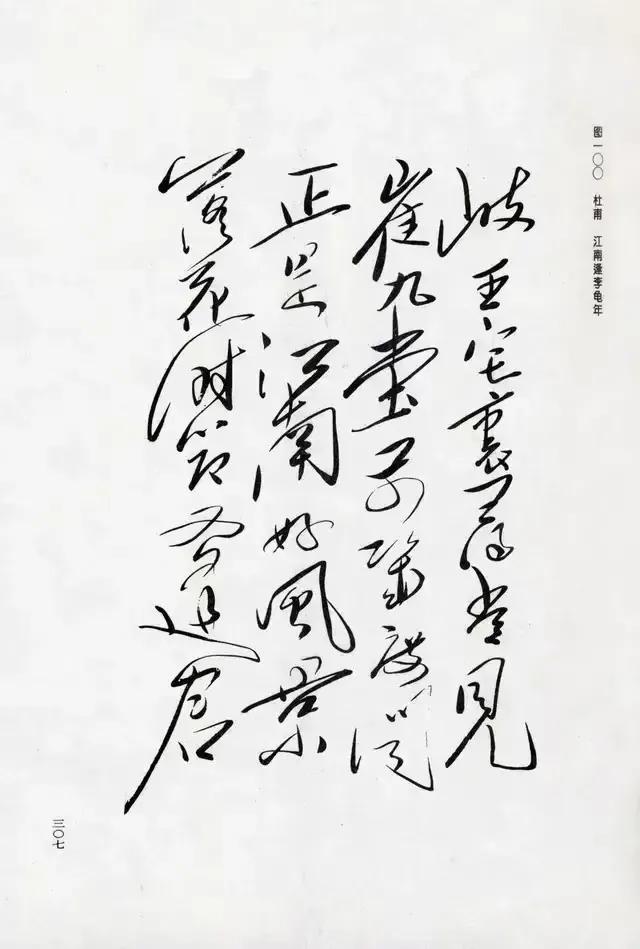 圖一〇〇 杜甫 江南逢李龟年
岐王宅裏尋常見
崔九堂前幾度聞
正是江南好風景
落花時節又逢君
三〇七